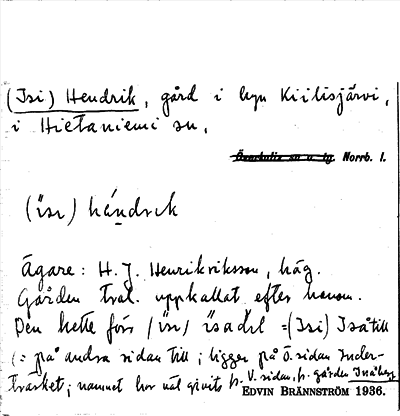 (Isi) Hendrik, gård i byn Kiilisjärvi,
i Hietaniemi sn,
Överkalix sn o. tg. Norrb. l.
(isi) héndrik
Ägare: H. J. Henriksson, häg.
Gården trol. uppkallat efter honom.
Den hette förr (isi) = (Isi) Isåtill
(: på andra sidan till; ligger på Ö. sidan
träsket; namnet bör väl givits fr. V. sidan, fr. gården
EDVIN BRÄNNSTRÖM 1936.